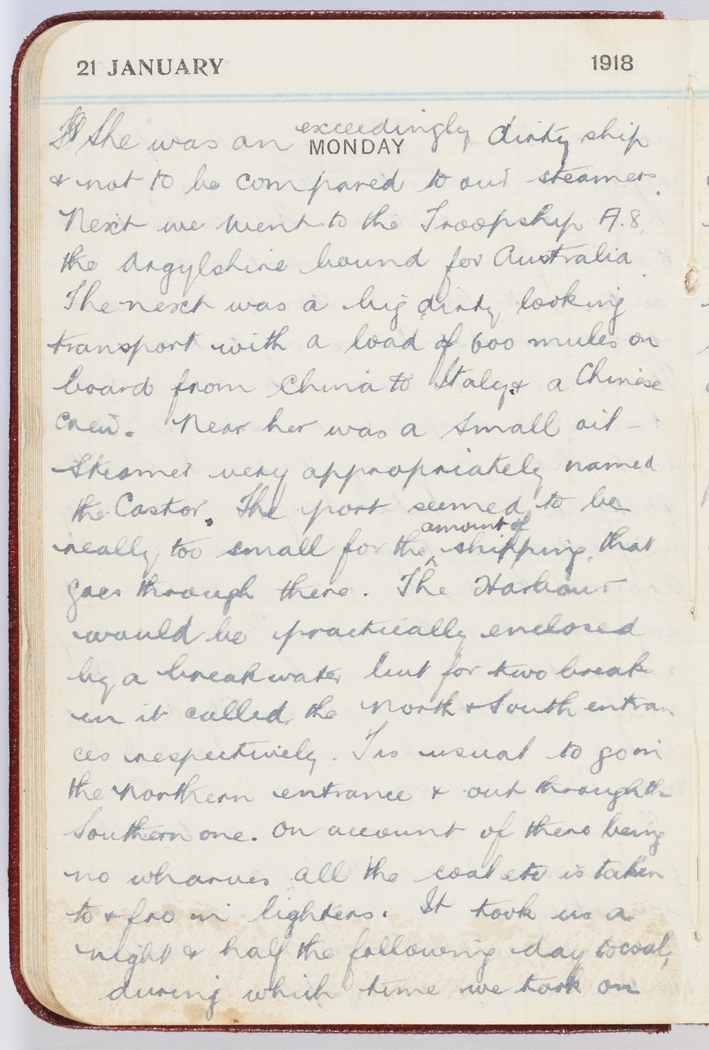 21 JANUARY 1918
MONDAY
She was an exceedingly dirty ship
& not to be compared to our steamer.
Next we went to the Troopship A.8,
the Argylshire bound for Australia
The next was a big dirty looking
transport with a load of 600 mules on
board from China to Italy & a Chinese
crew. Near her was a small oil-
steamer very appropriately named
the Castor. The port seemed to be
really too small for the amount of shipping that
goes through there. The Harbour
would be practically enclosed
by a breakwater but for two break
in it called the North & South entran
ces respectively. Tis usual to go in
the Northern entrance & out through the
Southern one. On account of there being
no wharves all the coal etc is taken
to & fro in lighters. It took us a
night & half the following day to coal,
during which time we took on